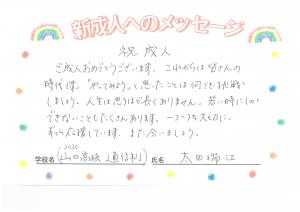 新成人へのメッセージ
祝 成人
ご成人おめでとうございます。これからは皆さんの
時代です。「やってみよう」と思ったことは何でも挑戦
しましょう。人生は思うほど長くありません。若い時にしか
できないこともたくさんあります。一つ一つを大切に。
ずっと応援しています。また会いましょう。
学校名（2020 山口高校 通信制） 氏名 太田 瑞江